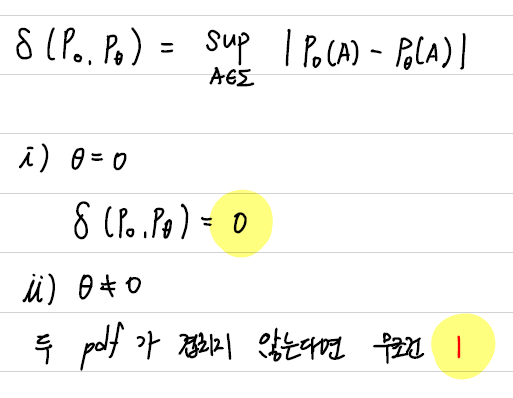 δ (P₀, P_θ) = sup_{A∈Σ} | P₀(A) - P_θ(A) |
i) θ = 0
δ (P₀, P_θ) = 0
ii) θ ≠ 0
두 pdf가 겹치지 않는다면 무조건 1